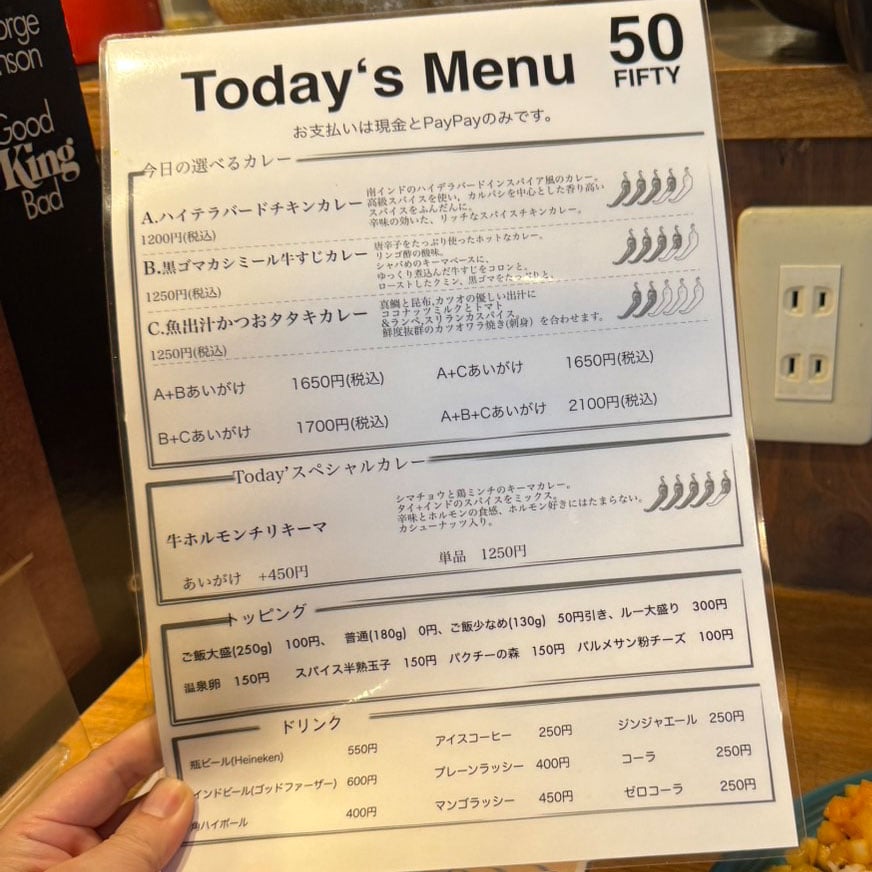 Good
King
Bad
Today's Menu
50
FIFTY
お支払いは現金とPayPayのみです。
今日の選べるカレー
A.ハイテラバードチキンカレー
1200円(税込)
南インドのハイデラバードインスパイア風のカレー。
高級スパイスを使い、カルパシを中心とした香り高い
スパイスをふんだんに。
辛味の効いた、リッチなスパイスチキンカレー。
B.黒ゴマカシミール牛すじカレー
1250円(税込)
唐辛子をたっぷり使ったホットなカレー。
リンゴ酢の酸味。
シャバめのキーマベースに、
ゆっくり煮込んだ牛すじをコロンと、
ローストしたクミン、黒ゴマをたっぷりと、
C.魚出汁かつおタタキカレー
1250円(税込)
真鯛と昆布,カツオの優しい出汁に
ココナッツミルクとトマト
&ランペ,スリランカスパイス。
鮮度抜群のカツオワラ焼き(刺身）を合わせます。
A+Bあいがけ 1650円(税込)
A+Cあいがけ 1650円(税込)
B+Cあいがけ 1700円(税込)
A+B+Cあいがけ 2100円(税込)
Today'スペシャルカレー
牛ホルモンチリキーマ
シマチョウと鶏ミンチのキーマカレー。
タイ+インドのスパイスをミックス。
辛味とホルモンの食感、ホルモン好きにはたまらない。
カシューナッツ入り。
あいがけ +450円
単品 1250円
トッピング
ご飯大盛(250g) 100円、 普通(180g) 0円、ご飯少なめ(130g) 50円引き、ルー大盛り 300円
温泉卵 150円 スパイス半熟玉子 150円 パクチーの森 150円 パルメサン粉チーズ 100円
ドリンク
瓶ビール(Heineken) 550円
アイスコーヒー 250円
ジンジャエール 250円
インドビール(ゴッドファーザー) 600円
プレーンラッシー 400円
コーラ 250円
角ハイボール 400円
マンゴラッシー 450円
ゼロコーラ 250円